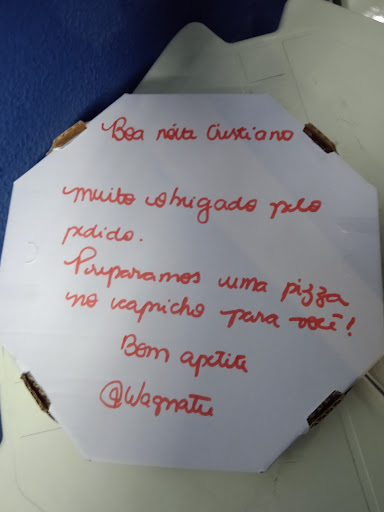 Boa noite Cristiano
muito obrigado pelo
pedido.
Preparamos uma pizza
no capricho para você!
Bom apetite
@Wagnatu